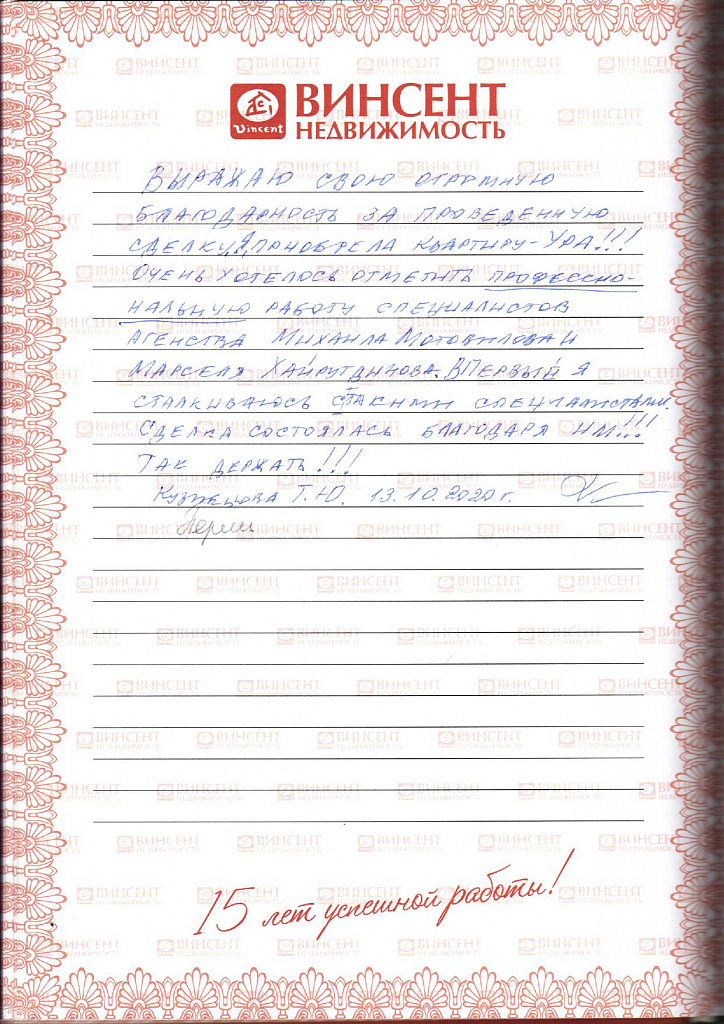 Vincent
ВИНСЕНТ
НЕДВИЖИМОСТЬ
Выражаю свою огромную
благодарность за проведенную
сделку, я приобрела квартиру - Ура!!!
Очень хотелось отметить профессио-
нальную работу специалистов
агенства Михаила Мотовилова и
Марселя Хайрутдинова. Впервый я
сталкиваюсь с такими специалистами.
Сделка состоялась благодаря им!!!
Так держать!!!
Кузнецова Т.Ю. 13.10.2020 г.
15 лет успешной работы!